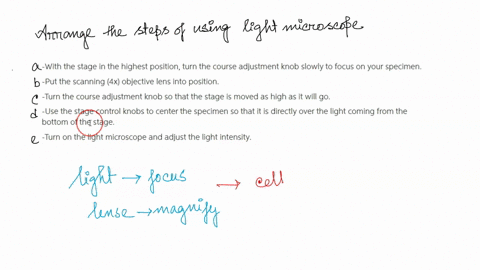 Arrange the steps of using light microscope
a -With the stage in the highest position, turn the course adjustment knob slowly to focus on your specimen.
b -Put the scanning (4x) objective lens into position.
c -Turn the course adjustment knob so that the stage is moved as high as it will go.
d -Use the stage control knobs to center the specimen so that it is directly over the light coming from the
bottom of the stage.
e -Turn on the light microscope and adjust the light intensity.
light → focus → cell
lense → magnify